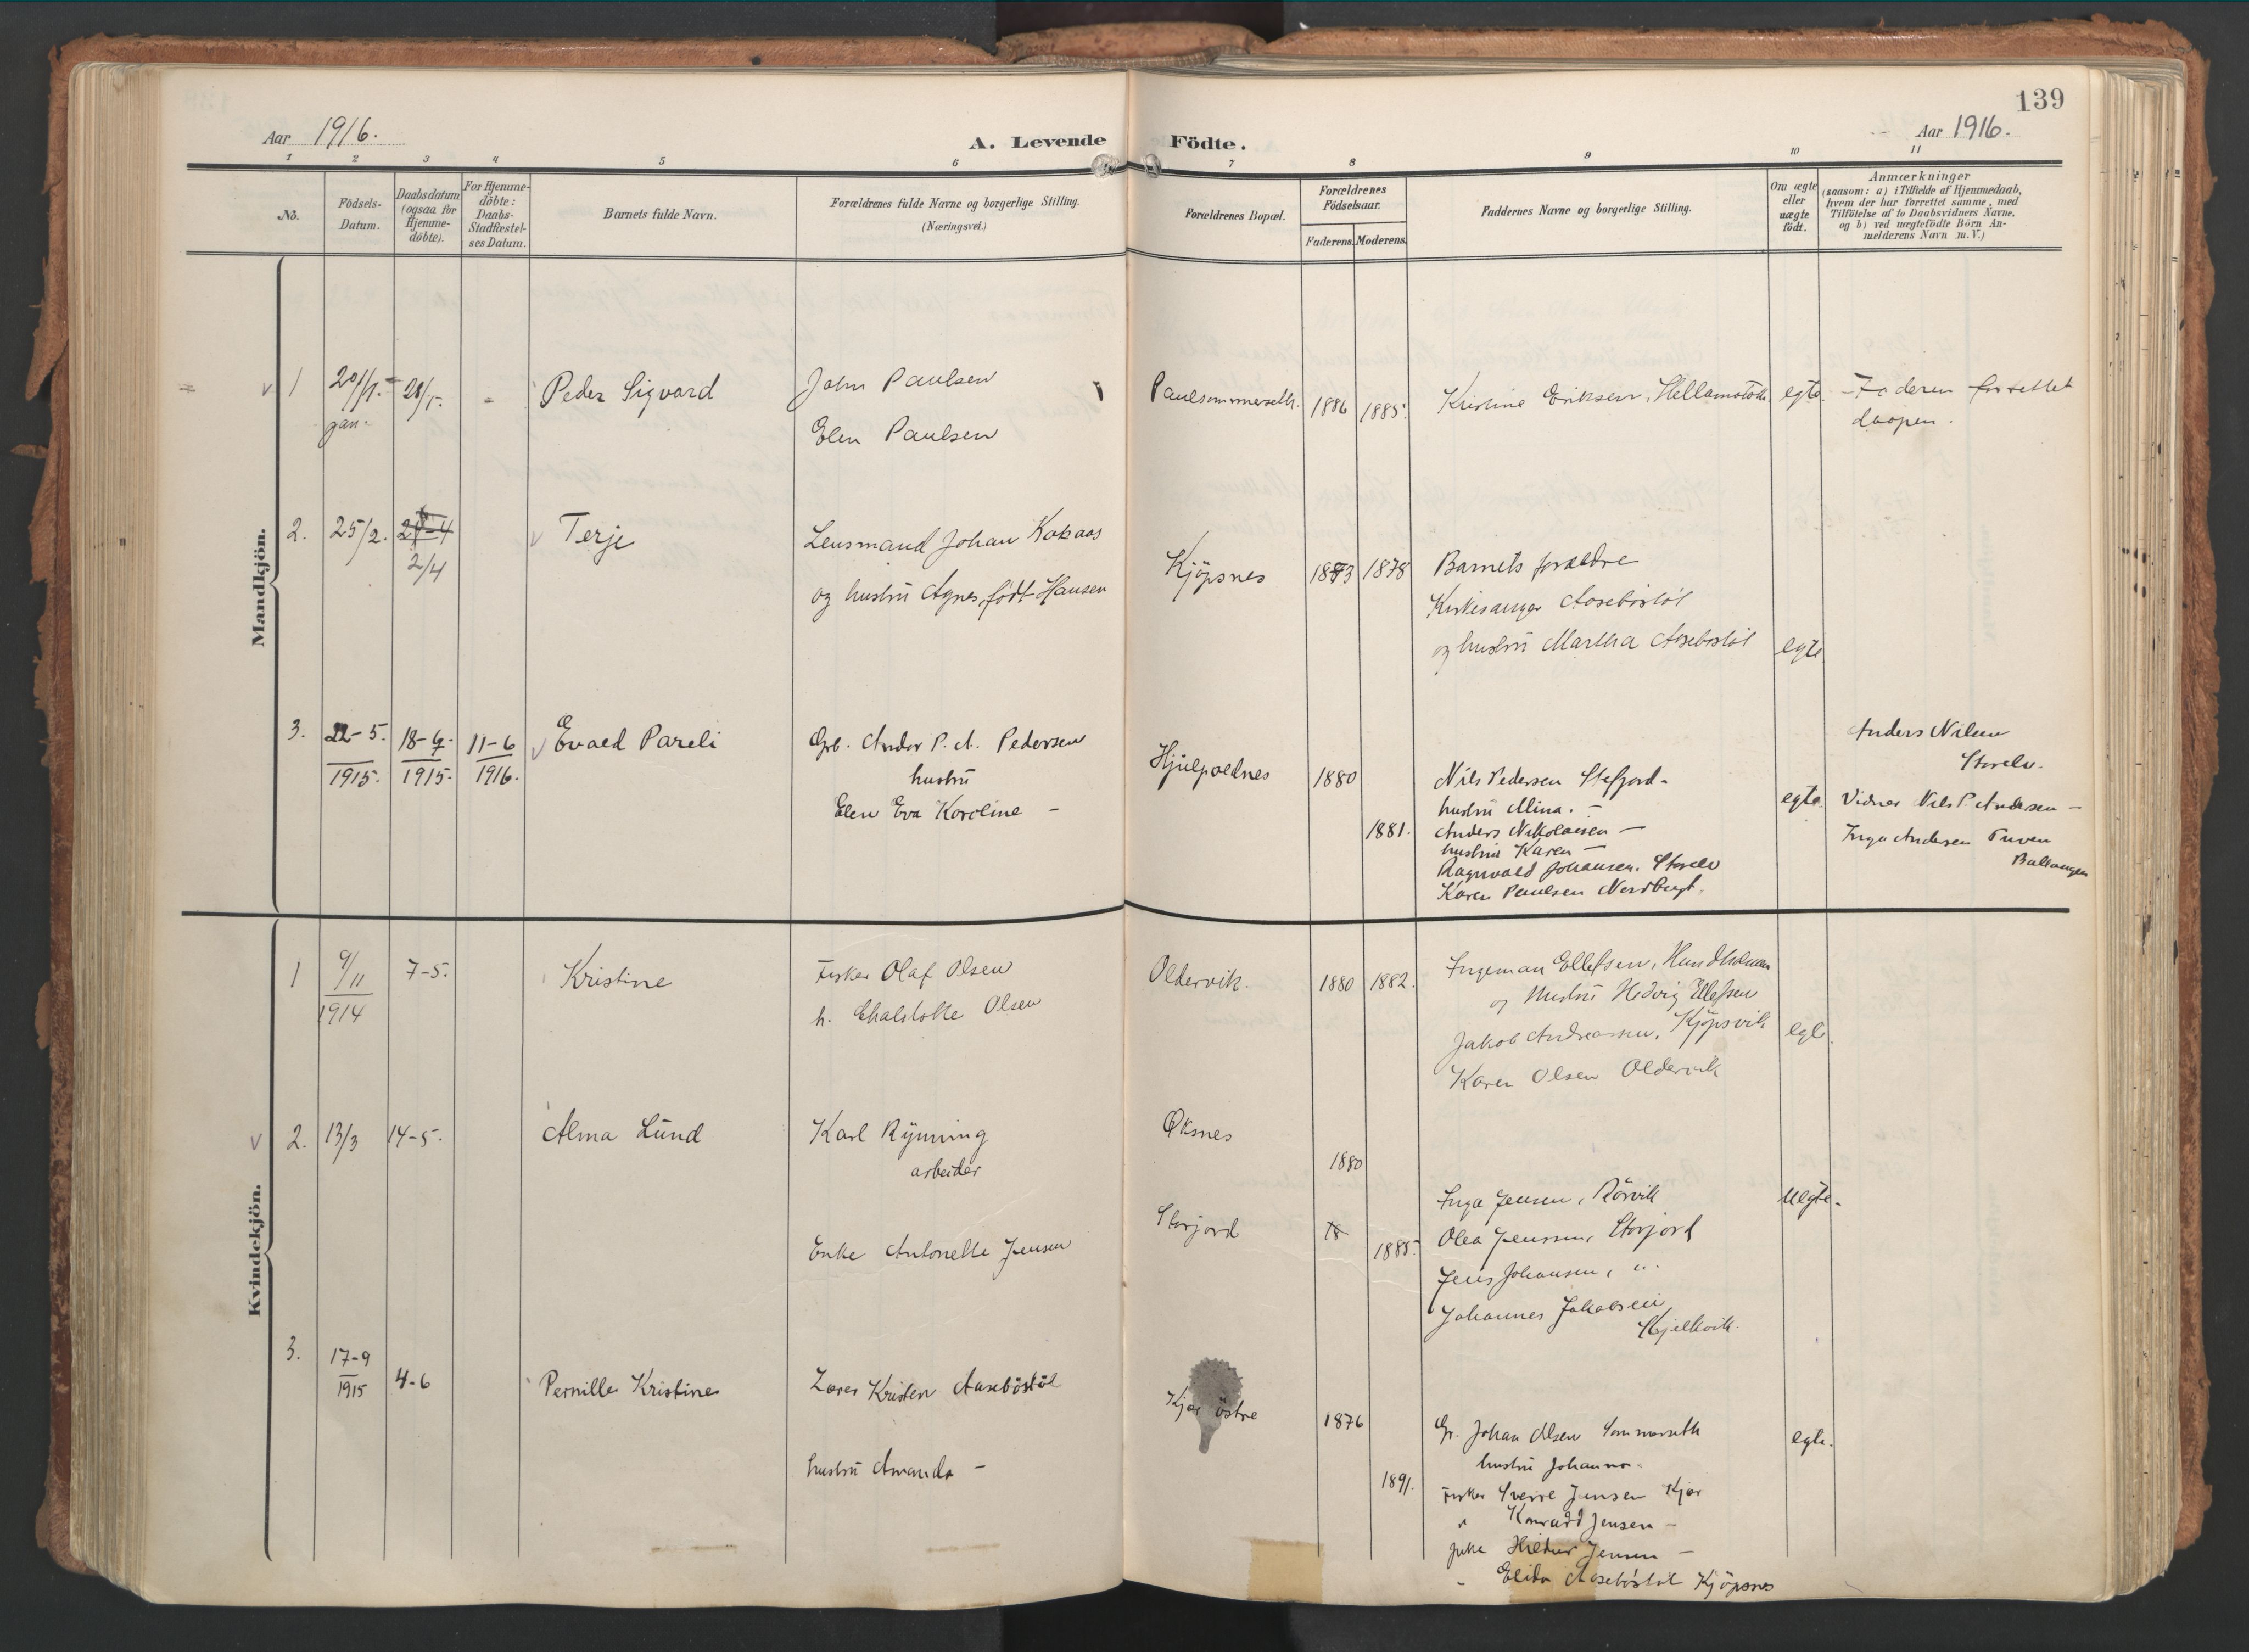 139
Aar 1916.
A. Levende
Födte.
Aar 1916.
1 2 3 4 5 6 7 8 9 10 11
No.
Födsels-
Datum.
Daabsdatum
(ogsaa for
Hjemme-
döbte).
For Hjemme-
döbte:
Daabs-
Stadfæstel-
ses Datum.
Barnets fulde Navn.
Forældrenes fulde Navne og borgerlige Stilling.
(Næringsvei.)
Forældrenes Bopæl.
Forældrenes
Födselsaar.
Faderens. Moderens.
Faddernes Navne og borgerlige Stilling.
Om ægte
eller
uægte
födt.
Anmærkninger
(saasom: a) i Tilfælde af Hjemmedaab,
hvem der har forrettet samme, med
Tilföielse af to Daabsvidners Navne,
og b) ved uægtefödte Börn An-
melderens Navn m. V.)
Mandkjön.
1
20/1.
jan.
20/1.
-
Peder Sigvard
John Paulsen
Elen Paulsen
Paulsommerseth.
1886
1885.
Kristine Eriksen,
egte
Faderen forrettet
daapen.
2.
25/2.
2/4
Terje
Lensmand Johan Kobaas
og hustrü Agnes, født Hansen
Kjöpsnes
1873
1878
Barnets forældre
Kirkesanger Aasebøstøl
og hustrü Martha Aasebøstøl
egte
3.
22-5.
1915.
18-6.
1915.
11-6
1916.
Evald Pareli
Grb. Andor P. A. Pedersen
hustrü
Elen Eva Karoline -
1880
1881.
Nils Pedersen Stefjord -
hustrü Mina. -
Anders Nikolaisen -
hustrü Karen -
Ragnvald Johansen. Storelv
Karen Paulsen Nordbugt.
egte.
Anders Nilsen
Storelv.
Vidner Nils P. Andersen -
Inga Andersen Tuven
Ballangen
Kvindekjön.
1
9/11
1914
7-5.
Kristine
Fisker Olaf Olsen
h. Charlotte Olsen
Oldervik.
1880
1882.
Ingeman Ellefsen, Hundholmen
og hustrü Hedvig Ellefsen
Jakob Andreassen, Kjöpsvik
Karen Olsen Oldervik
egte
2.
13/3
14-5.
Alma Lünd
Karl Rÿnning
arbeider
Enke Antonette Jensen
Øksnes
Storjord
1880
18
1885.
Inga Jensen, Rörvik
Olea Jenssen, Storjord
Jens Johansen, "
Johannes Jakobsen
Skjellvik.
uegte.
3.
17-9
1915
4-6
Pernille Kristine
Lærer Kristen Aasebøstøl
hustrü Amanda -
Kjær östre
1876
1891.
Gr. Johan Olsen Sommerseth
hustrü Johanna.
Fisker Sverre Jensen Kjær
" Konrad Jensen -
pike Hildur Jensen -
- Elida Aasebøstøl Kjöpsnes
egte.